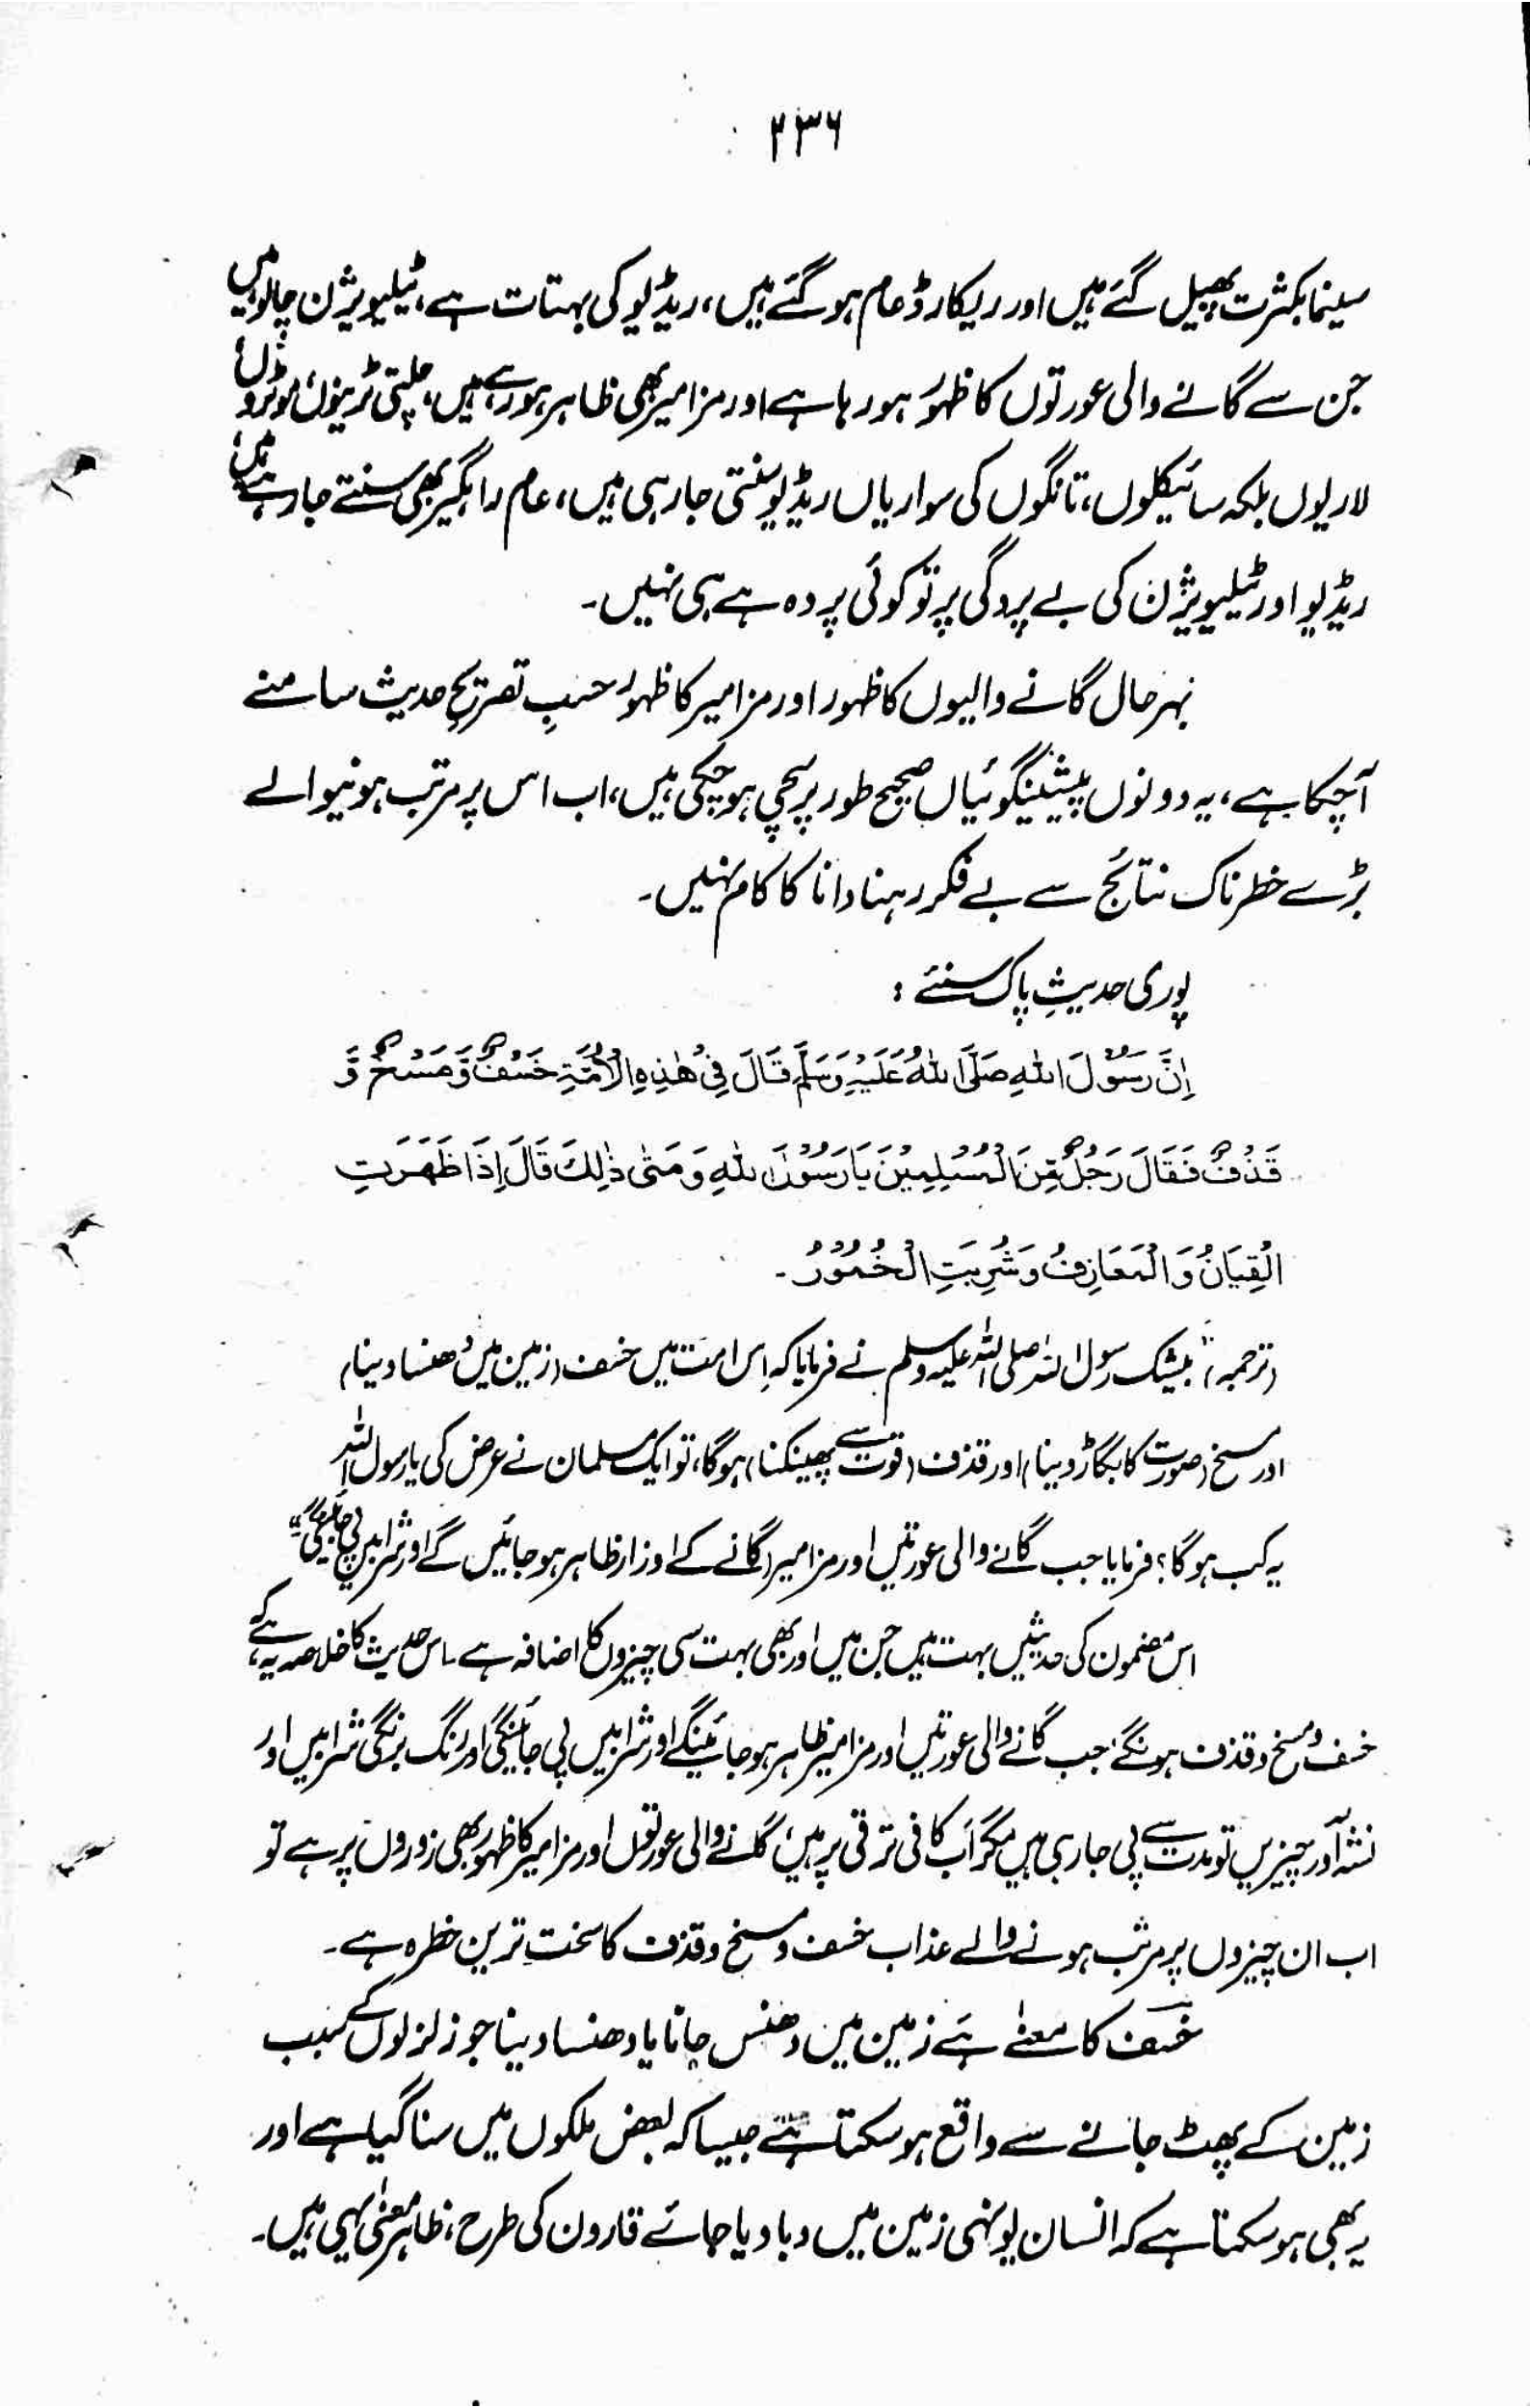 ۲۳۶
سینما بکثرت پھیل گئے ہیں اور ریکارڈ عام ہو گئے ہیں، ریڈیو کی بہتات ہے، ٹیلیویژن چالو ہیں
جن سے گانے والی عورتوں کا ظہور ہو رہا ہے اور مزامیر بھی ظاہر ہو رہے ہیں، چلتی ٹرینوں، موٹروں،
لاریوں بلکہ سائیکلوں، تانگوں کی سواریاں ریڈیو سنتی جا رہی ہیں، عام راہگیر بھی سنتے جا رہے ہیں،
ریڈیو اور ٹیلیویژن کی بے پردگی پر تو کوئی پردہ ہے ہی نہیں۔
بہرحال گانے والیوں کا ظہور اور مزامیر کا ظہور حسبِ تصریحِ حدیث سامنے
آچکا ہے، یہ دونوں پیشینگوئیاں صحیح طور پر سچی ہو چکی ہیں، اب اس پر مرتب ہونیوالے
بڑے خطرناک نتائج سے بے فکر رہنا دانا کا کام نہیں۔
پوری حدیثِ پاک سنئے :
اِنَّ رَسُوْلَ اللهِ صَلَّى اللهُ عَلَيْهِ وَسَلَّمَ قَالَ فِىْ هٰذِهِ الْاُمَّةِ خَسْفٌ وَّ مَسْخٌ وَّ
قَذْفٌ فَقَالَ رَجُلٌ مِّنَ الْمُسْلِمِيْنَ يَا رَسُوْلَ اللهِ وَ مَتٰى ذٰلِكَ قَالَ اِذَا ظَهَرَتِ
الْقِيَانُ وَ الْمَعَازِفُ وَ شُرِبَتِ الْخُمُوْرُ۔
(ترجمہ) "بیشک رسول اللہ صلی اللہ علیہ وسلم نے فرمایا کہ اس امت میں خسف (زمین میں دھنسا دینا)
اور مسخ (صورت کا بگاڑ دینا) اور قذف (قوت سے پھینکنا) ہوگا، تو ایک مسلمان نے عرض کی یا رسول اللہ
یہ کب ہوگا؟ فرمایا جب گانے والی عورتیں اور مزامیر (گانے کے اوزار ظاہر ہو جائیں گے اور شرابیں پی جائیں گی"
اس مضمون کی حدیثیں بہت ہیں جن میں اور بھی بہت سی چیزوں کا اضافہ ہے۔ اس حدیث کا خلاصہ یہ ہے کہ
خسف و مسخ و قذف ہونگے، جب گانے والی عورتیں اور مزامیر ظاہر ہو جائینگے اور شرابیں پی جائینگی اور رنگ برنگی شرابیں اور
نشہ آور چیزیں تو مدت سے پی جا رہی ہیں مگر اب کافی ترقی پر ہیں، گانے والی عورتوں اور مزامیر کا ظہور بھی زوروں پر ہے تو
اب ان چیزوں پر مرتب ہونے والے عذاب خسف و مسخ و قذف کا سخت ترین خطرہ ہے۔
خسف کا معنےٰ ہے زمین میں دھنس جانا یا دھنسا دینا جو زلزلوں کے سبب
زمین کے پھٹ جانے سے واقع ہو سکتا ہے جیسا کہ بعض ملکوں میں سنا گیا ہے اور
یہ بھی ہو سکتا ہے کہ انسان یونہی زمین میں دبا دیا جائے قارون کی طرح، ظاہر معنیٰ یہی ہیں۔